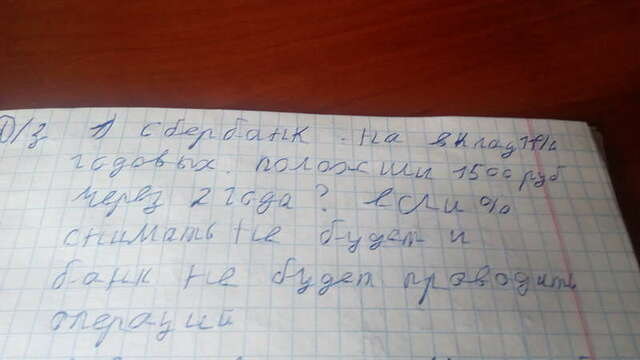 Д/З 1) Сбербанк. На вклад
годовых. положили 1500 руб
через 2 года? если %
снимать не будет и
банк не будет проводить
операций